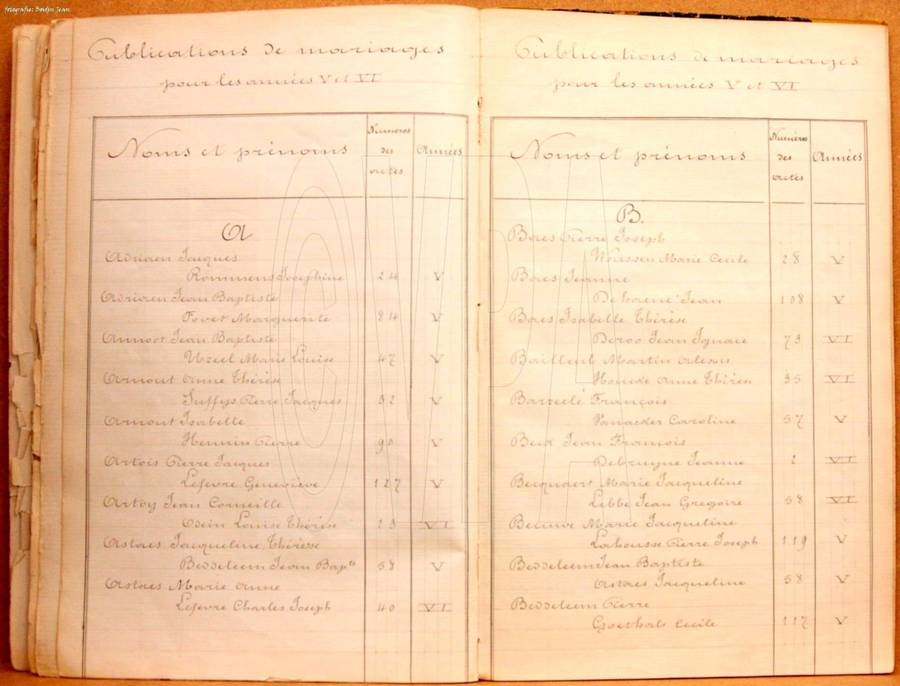 fotografie: Bordjn Jean
Publications de mariages
pour les années V et VI
Noms et prénoms Numéros des actes Années
A
Adrien Jacques
Rommens Joséphine 24 V
Adriaen Jean Baptiste
Fovet Marguerite 84 V
Annoot Jean Baptiste
Uzeel Marie Louise 47 V
Arnout Anne Thérèse
Suffys Pierre Jacques 92 V
Arnout Isabelle
Hennin Pierre 90 V
Artois Pierre Jacques
Lefevre Geneviève 127 V
Artoy Jean Corneille
Odein Louise Thérèse 20 VI
Astaes Jacqueline Thérèsse
Beddeleem Jean Bapte 58 V
Astaes Marie Anne
Lefevre Charles Joseph 40 VI
Publications de mariages
pour les années V et VI
Noms et prénoms Numéros des actes Années
B.
Baes Pierre Joseph
Woussen Marie Cecile 28 V
Baes Jeanne
Jean 108 V
Baes Isabelle Thérèse
Deroo Jean Ignace 73 VI
Bailleul Martin Alexis
Houcke Anne Thérèse 35 VI
François
Vanacker Caroline 57 V
Jean François
Debruyne Jeanne 2 VI
Becquaert Marie Jacqueline
Libbe Jean Gregoire 58 VI
Becuwe Marie Jacqueline
Lahousse Pierre Joseph 119 V
Beddeleem Jean Baptiste
Astaes Jacqueline 58 V
Beddeleem Pierre
Goethals Cecile 117 V